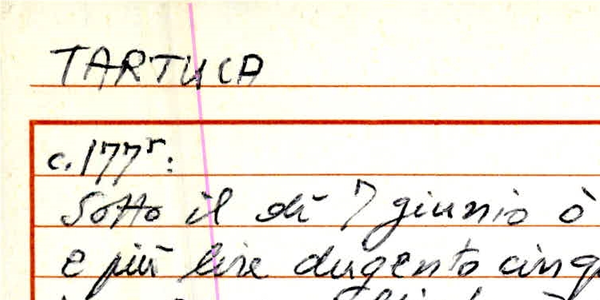 TARTUCA
c. 177r:
Sotto il dì 7 giugnio ò
e più lire dugento cinq